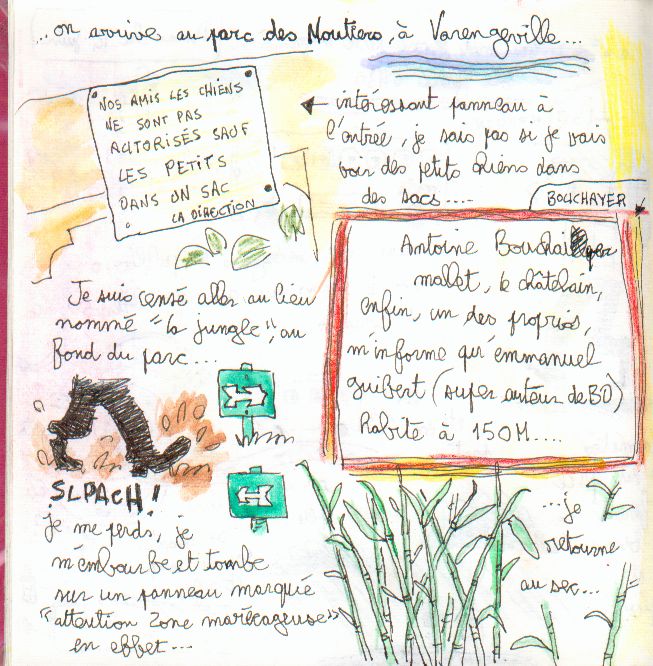 ...on arrive au parc des Moutiers, à Varengeville...
NOS AMIS LES CHIENS
NE SONT PAS
AUTORISÉS SAUF
LES PETITS
DANS UN SAC
LA DIRECTION
intéressant panneau à
l'entrée, je sais pas si je vais
voir des petits chiens dans
des sacs....
BOUCHAYER
Antoine Bouchai
mallet, le châtelain,
enfin, un des proprios,
m'informe qu'emmanuel
guibert (super auteur de BD)
habite à 150M....
Je suis censé aller au lieu
nommé "la jungle", au
fond du parc...
SLPACH!
je me perds, je
m'embourbe et tombe
sur un panneau marqué
"attention zone marécageuse"
en effet...
...je
retourne
au sec...